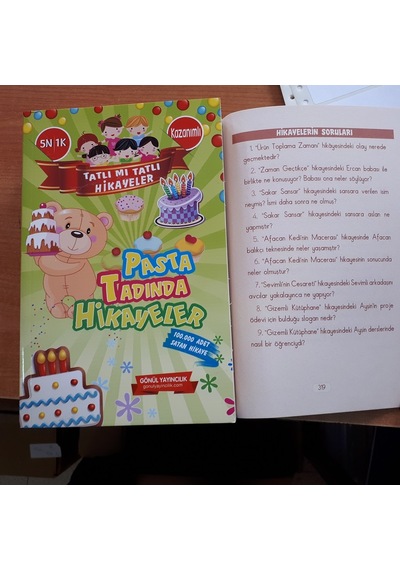 5N 1K
Kazanımlı
TATLI MI TATLI
HİKAYELER
PASTA
TADINDA
HİKAYELER
100.000 ADET
SATAN HİKAYE
GÖNÜL YAYINCILIK
gonulyayincilik.com
HİKAYELERİN SORULARI
1. "Ürün Toplama Zamanı" hikâyesindeki olay nerede
geçmektedir?
2. "Zaman Gectikçe" hikayesindeki Ercan babası ile
birlikte ne konuşuyor? Babası ona neler söylüyor?
3. "Sakar Sansar" hikayesindeki sansara verilen isim
neymiş? İsmi daha sonra ne olmuş?
4. "Sakar Sansar" hikayesindeki sansara aslan ne
yapmıştır?
5. "Afacan Kedi'nin Macerası" hikayesinde Afacan
balıkçı teknesinde neler yaşamıştır?
6. "Afacan Kedi'nin Macerası" hikayesinin sonucunda
neler olmuştur?
7. "Sevimli'nin Cesareti" hikayesindeki Sevimli arkadaşını
avcılar yakalayınca ne yapıyor?
8. "Gizemli Kütüphane" hikayesindeki Aysin'in proje
ödevi için bulduğu slogan nedir?
9. "Gizemli Kütüphane" hikayesindeki Aysin derslerinde
nasıl bir öğrenciydi?